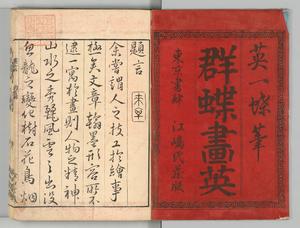 英一蝶筆
群蝶畫英
東京書肆 江嶋氏藏版
題言
余嘗謂人之技工於繪事
極矣文章翰墨形容所不
逮一寓於畫則人物之精神
山水之秀麗風雲之出没
魚龍之變化樹石花鳥烟